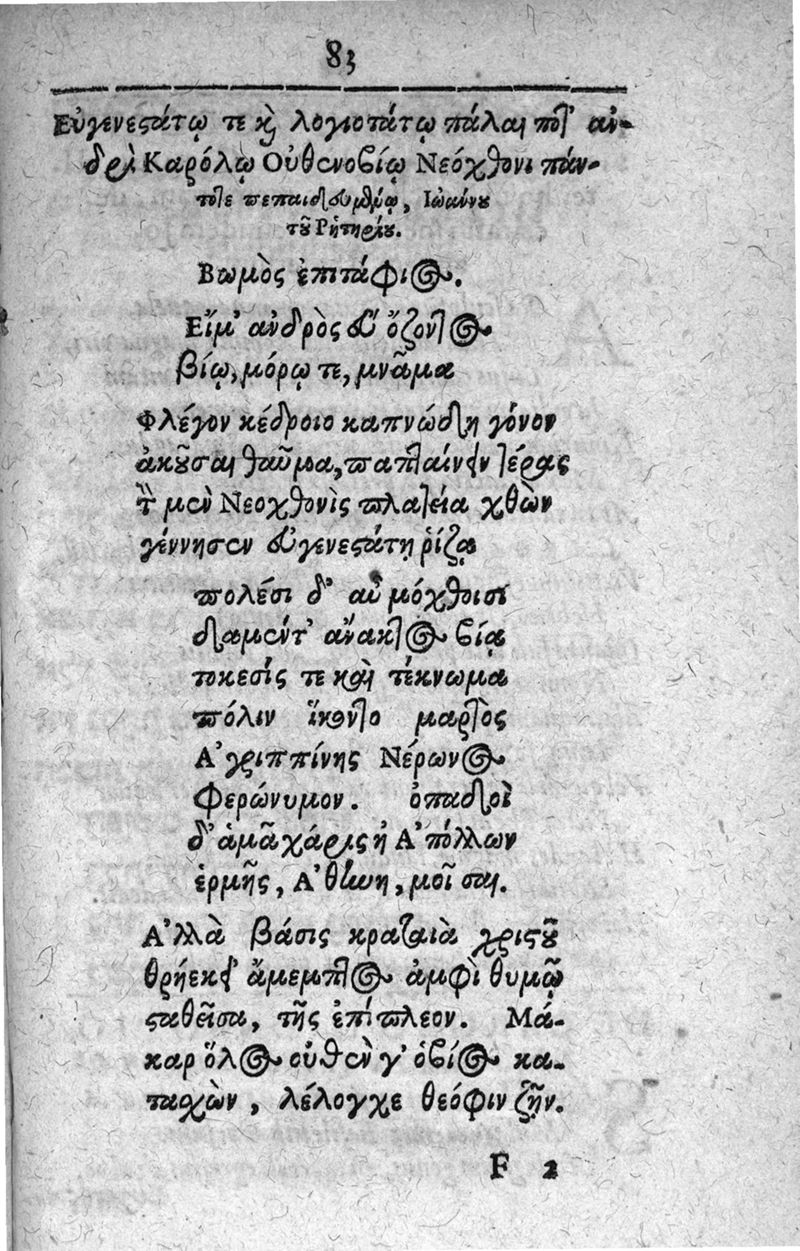 83
Εὐγενεστάτῳ τε καὶ λογιοτάτῳ πάλαι ποτ' ἀν-
δρὶ Καρόλῳ Οὐθενοβίῳ Νεόχθονι πάν-
τοτε πεπαιδευμένῳ, Ἰωάννου
τοῦ Ῥητηρίου.
Βωμὸς ἐπιτάφιος.
Εἴμ' ἀνδρὸς εὖ ὄζοντος
βίῳ, μόρῳ τε, μνᾶμα
Φλέγον κέδροιο καπνώδη γόνον
ἀκοῦσαι θαῦμα, παπταίνειν τέρας
τ μὲν Νεοχθονὶς πλατεῖα χθὼν
γέννησεν εὐγενεστάτη ῥίζα
πολέσι δ' αὖ μόχθοισι
δαμέντ' ἄνακτος βίᾳ
τοκεσίς τε καὶ τέκνωμα
πόλιν ἵκοντο μαρτὸς
Ἀγριππίνης Νέρωνος
φερώνυμον. ὀπαδοὶ
δ' ἁμᾶ χάρις ἠ Ἀπόλλων
ἑρμῆς, Ἀθήνη, μοῖσαι.
Ἀλλὰ βάσις κραταιὰ χριστοῦ
θρήεκει' ἄμεμπτος ἀμφὶ θυμῷ
σταθεῖσα, τῆς ἐπίπλεον. Μά-
καρ ὅλος οὐθὲν γ' ὀβίος κα-
τασχὼν, λέλογχε θεόφιν ζῆν.
F 2